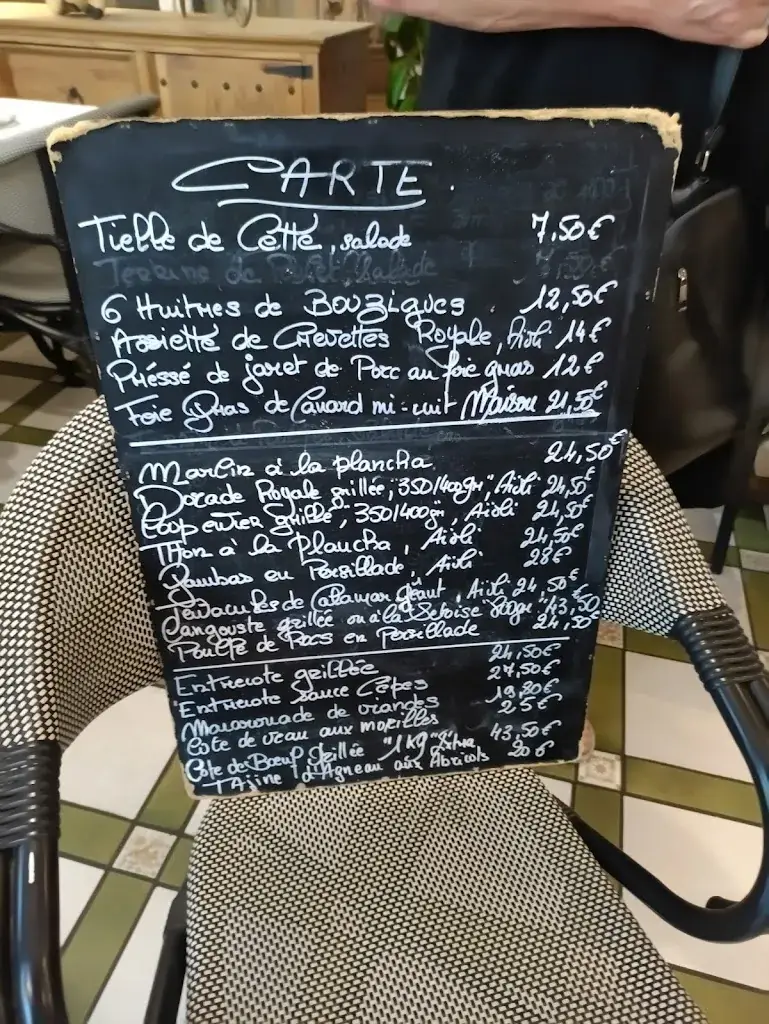 CARTE.
Tielle de Cette, salade 7,50€
Terrine de salade
6 Huitres de BOUZIGUES 12,50€
Assiette de Crevettes Royale, Aïoli 14€
Préssé de jaret de Porc au foie gras 12€
Foie Gras de Canard mi-cuit Maison 21,50€
Marlin à la plancha 24,50€
Dorade Royale grillée, 350/400gr, Aïoli 24,50€
Loup entier grillé, 350/400gr, Aïoli 24,50€
Thon à la Plancha, Aïoli 24,50€
Gambas en Persillade, Aïoli 28€
Tentacules de Calamar géant, Aïoli 24,50€
Langouste grillée ou à la Setoise 43,50
Poulpe de Rocs en Persillade 24,50€
Entrecote grillée 24,50€
Entrecote sauce Cèpes 27,50€
Macaronade de viandes
Cote de veau aux morilles 25€
Côte de Bœuf grillée "1kg" 43,50€
TAjine d'Agneau aux Abricots 20€